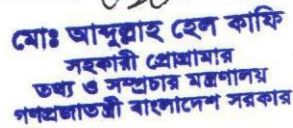 মোঃ আব্দুল্লাহ হেল কাফি
সহকারী প্রোগ্রামার
তথ্য ও সম্প্রচার মন্ত্রণালয়
গণপ্রজাতন্ত্রী বাংলাদেশ সরকার